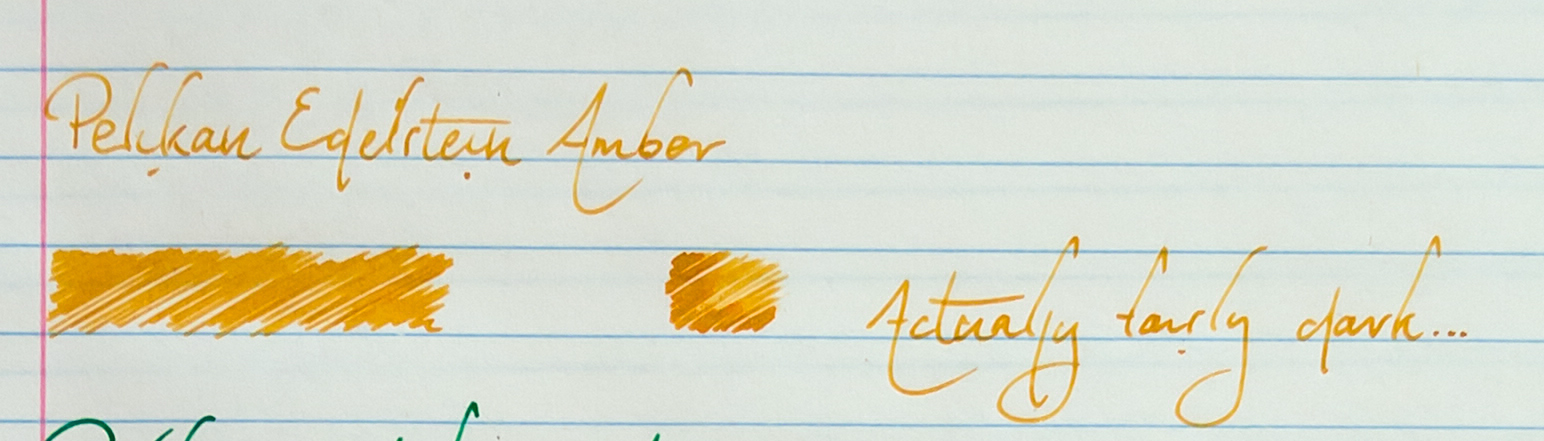 Pelikan Edelstein Amber
Actually fairly dark...